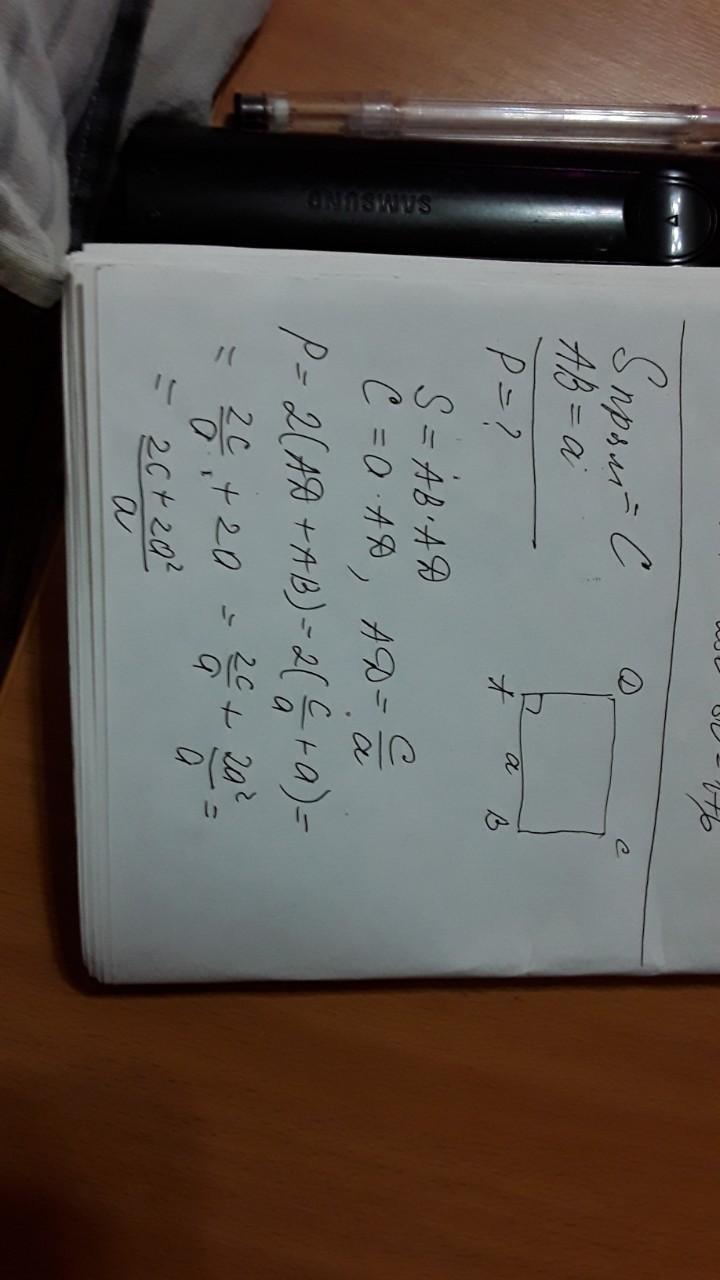 SAMSUNG
S прям = C
AB = a
P = ?
D C
A a B
S = AB·AD
C = a·AD, AD = C/a
P = 2(AD + AB) = 2(C/a + a) =
= 2C/a + 2a = 2C/a + 2a²/a =
= 2C + 2a²/a